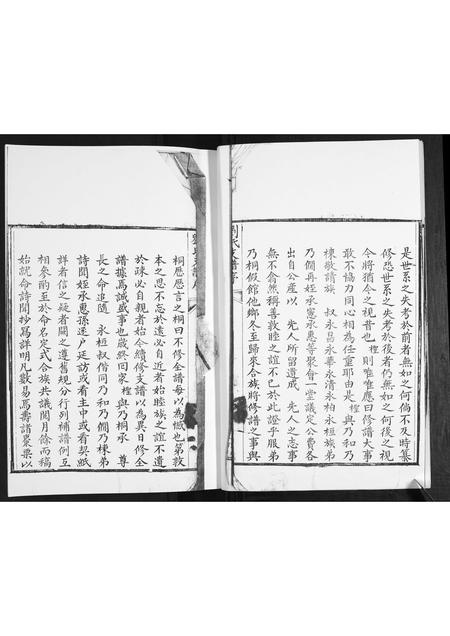 是世系之失考於前者無如之何倘不及時纂
修恐世系之失考於後者仍無如之何後之視
今將猶今之視昔也樫則唯唯應曰修譜大事
敢不協力同心相為任重耶由是樫與乃和乃
棟敬請族 叔永昌永華永清永柏永桓族弟
乃僩再姪承憲承惠等聚首一堂議定公費各
出自公產以 先人所留遺成 先人之志事
無不翕然稱善敦睦之誼不已於此證乎服弟
乃桐假館他鄉冬至歸來合族將修譜之事與
劉氏支譜序
桐歷歷言之桐曰不修全譜每以為憾也第敦
本之思不忘於遠必自近者始睦族之誼不遺
於疎必自親者始今續修支譜以為異日修全
譜據焉誠盛事也歲終回家樫與乃桐承 尊
長之命追隨 永桓叔偕同乃和乃僩乃棟弟
詩閏姪承憲惠孫逐户廷訪或看主中或看契紙
詳者信之疑者闕之遵舊規分行列補譜例互
相參酌至於命名定式合族共議閱月餘而稿
始就命詩閏抄寫詳明凡數易為壽諸棗栗以